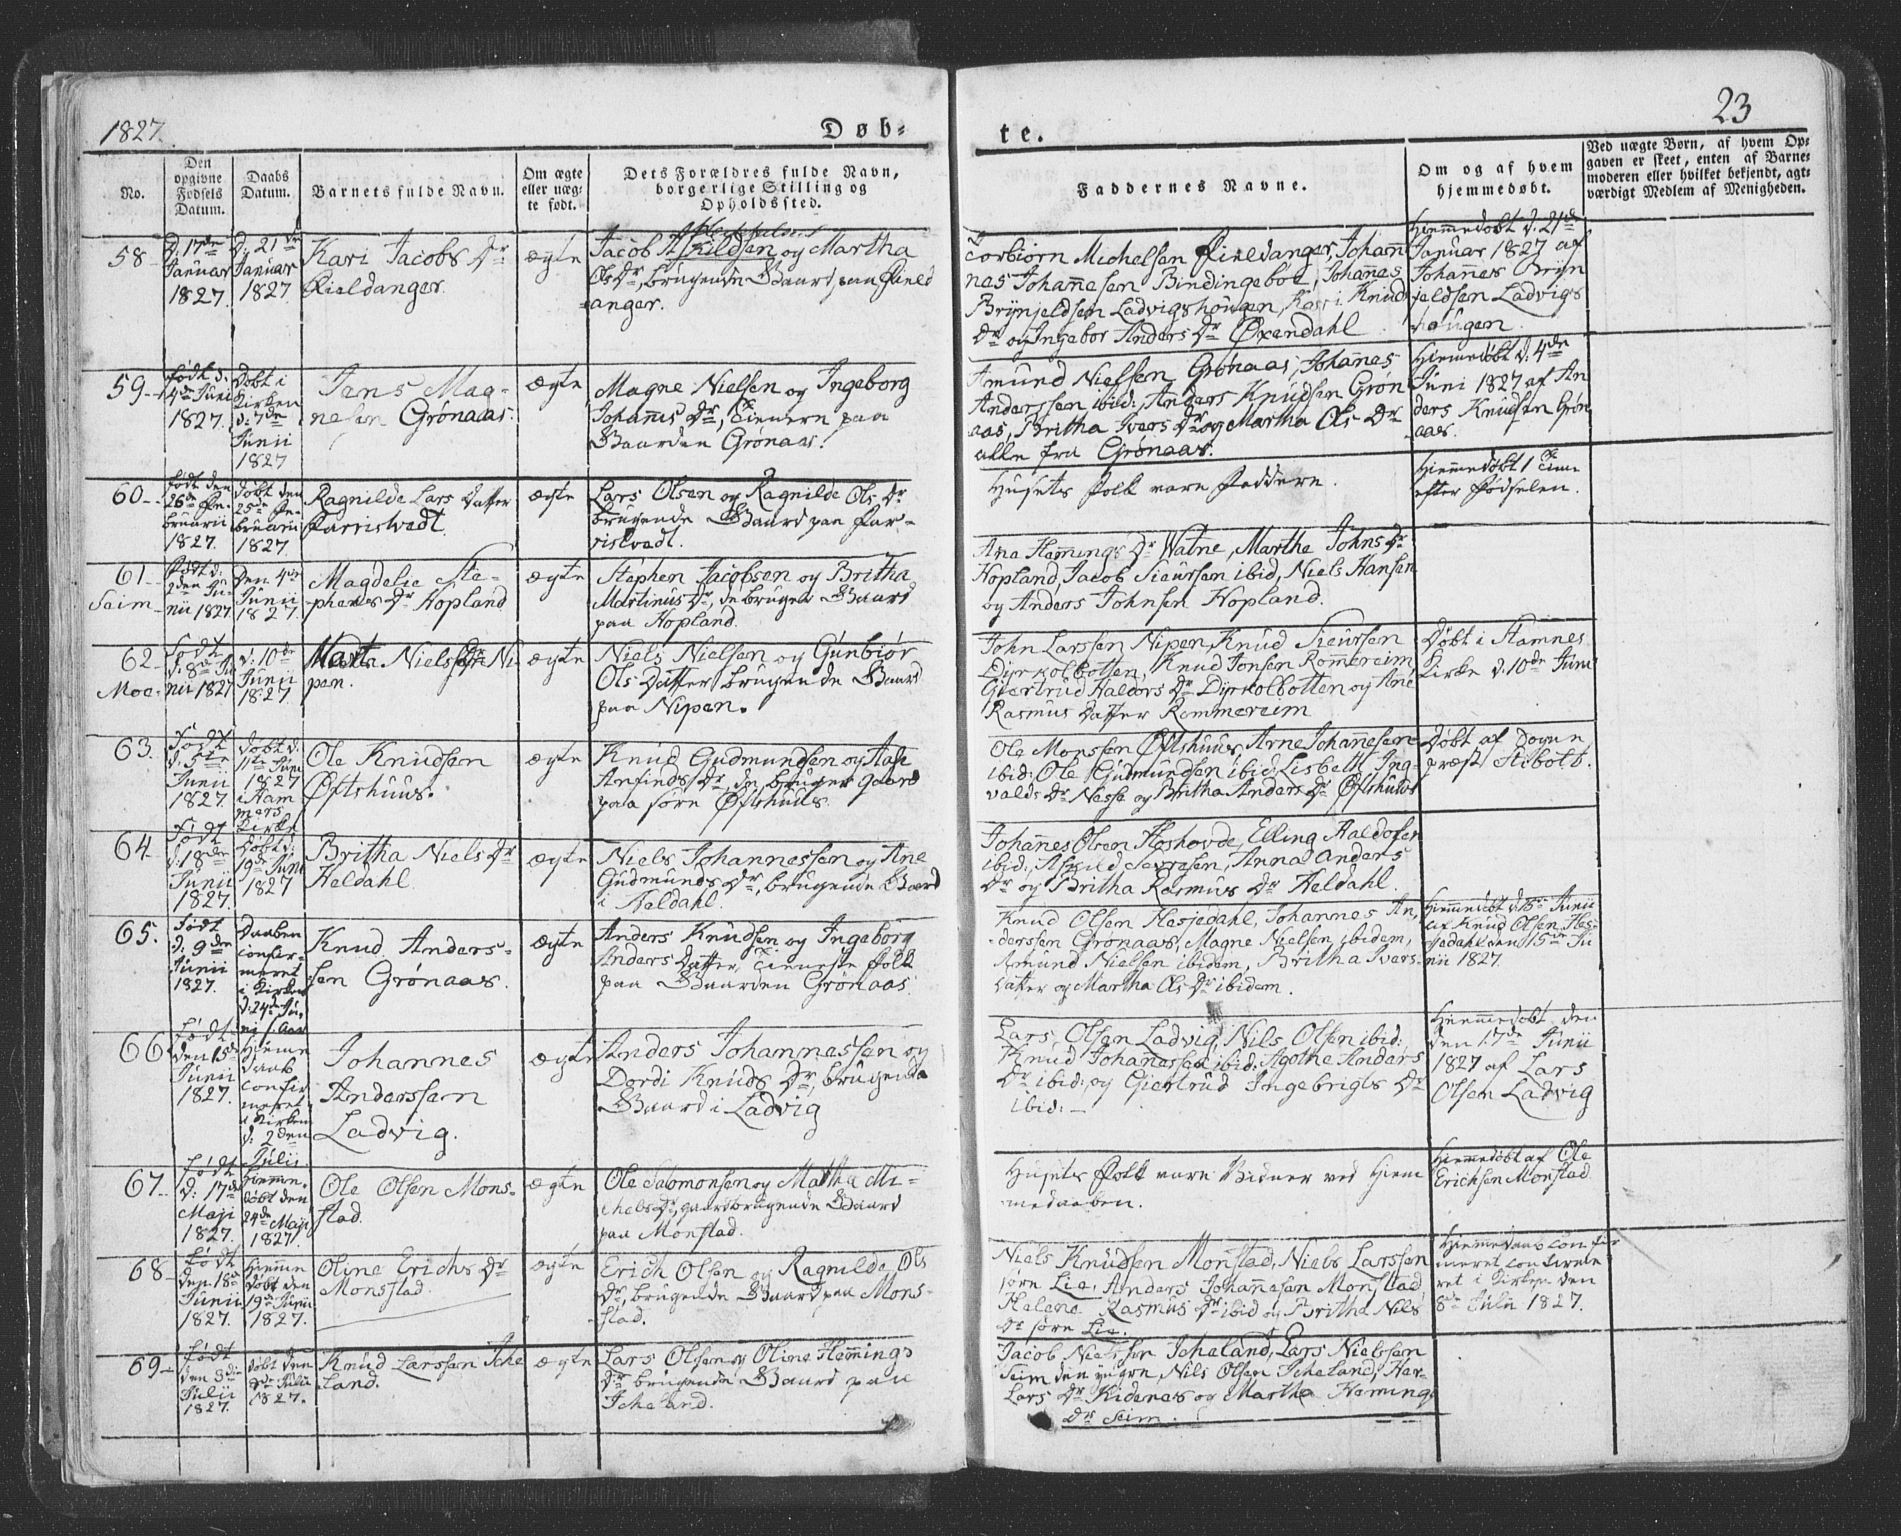 1827.
Døb-
te.
23
No.
Den opgivne Fødsels Datum.
Daabs Datum.
Barnets fulde Navn.
Om ægte eller uæg-te født.
Dets Forældres fulde Navn, borgerlige Stilling og Opholdssted.
Faddernes Navne.
Om og af hvem hjemmedøbt.
Ved uægte Børn, af hvem Op-
gaven er skeet, enten af Barne-
moderen eller hvilket bekjendt, agt-
værdigt Medlem af Menigheden.
58
D: 17de
Januar
1827.
D: 21de
Januar
1827
Kari Jacobs Dr
Fieldanger.
ægte
Jacob Askildsen og Martha
Ols Dr, brugende Gaard paa Field
anger.
Torbiørn Michelsen Fieldanger, Johan
nes Johannesen Bindingeboe, Johannes
Brynjeldsen Ladvigshougen, Kari Knuds
Dr og Ingebor Anders Dr Øxendahl
Hiemmedøbt d. 21de
Januar 1827 af
Johannes Bryn
jeldsen Ladvigs
hougen.
59
født d.
4de Juni
1827.
Døbt i
Kirken
d: 7de
Junii
1827
Jens Mag-
nesen Grønaas.
ægte
Magne Nielsen og Ingeborg
Johannis Dr, Tienere paa
Gaarden Grønaas.
Amund Nielsen Grønaas, Johannes
Anderssen ibid:, Anders Knudsen Grøn
aas, Britha Ivers Dr og Martha Ols Dr
alle fra Grønaas.
Hiemmedøbt d: 4de
Juni 1827 af An
ders Knudsen Grøn
aas.
60
født den
26de Fe-
bruarii
1827.
døbt den
25de Fe-
bruarii
1827.
Ragnilde Lars Datter
Farrisvadt.
ægte
Lars Olsen og Ragnilde Ols Dr
brugende Gaard paa Far-
risvadt.
Husets folk vare Faddere.
Hiemmedøbt 1 Time
efter Fødselen.
61
Seim
født d.
2den Ju-
nii 1827
Den 4de
Junii
1827.
Magdelie Ste-
phens Dr Hopland
ægte
Stephen Jacobsen og Britha
Martinus Dr, de bruger Gaard
paa Hopland.
Ana Hemings Dr Watne, Marthe Johns Dr
Hopland, Jacob Sieursen ibid, Niels Hansen
og Anders Johnsen Hopland.
62
Moe
født
d: 8de Ju
nii 1827
d: 10de
Junii
1827
Niels Dr Ni
pen.
ægte
Niels Nielsen og Gunbiør
Ols Datter brugende Gaard
paa Nipen.
John Larssen Nipen, Knud Sieursen
Dyrkolbotten, Knud Jonsen Rommereim
Giertrud Haldors Dr Dyrkolbotten og Ane
Rasmus Datter Rommereim
Døbt i Stamnes
Kirke d. 10de Juni
63.
født
d. 5te
Junii
1827.
døbt d.
11te Juni
1827
i Ham
mers
Kirke
Ole Knudsen
Øftshuus.
ægte
Knud Gudmundsen og Aase
Arfinds Dr, de bruger gaard
paa søre Øftshuus
Ole Monssen Øftshuus, Arne Johannesen
ibid: Ole Gudmundsen ibid Lisbeth Ing-
valds Dr Nesse og Britha Anders Dr Øftshuus
Døbt af Sogne
præst Stibolt.
64
født
d: 18de
Junii
1827.
døbt d:
19de Juni
1827
Britha Niels Dr
Heldahl.
ægte
Niels Johannessen og Ane
Gudmunds Dr, brugende Gaard
i Heldahl.
Johannes Olsen Hoshovde, Elling
ibid:, Anna Anders
Dr og Britha Rasmus Dr Heldahl.
65.
født
d: 9de
Junii
1827.
Daaben
confir-
meret
i Kirken
d: 24de Ju-
ni
Knud Anders-
sen Grønaas.
ægte
Anders Knudsen og Ingeborg
Anders Datter, Tieneste folk
paa Gaarden Grønaas.
Knud Olsen Hesjedahl, Johannes An,
derssen Grønaas, Magne Nielsen ibidem,
Amund Nielsen ibidem, Britha Ivers-
Datter og Martha Ols Dr ibidem.
Hiemmedøbt d. 15de Junii
af Knud Olsen Hes-
jedahl den 15de Ju
nii 1827.
66
født
den 15de
Junii
1827.
Hieme
daab
confir
meret
i Kirken
d: 2den
Julii.
Johannes
Anderssen
Ladvig.
ægte
Anders Johannessen og
Dordi Knuds Dr, brugende
Gaard i Ladvig
Lars Olsen Ladvig, Nils Olsen ibid:
Knud Johannessen ibid: Agothe Anders
Dr ibid:, og Giertrud Ingebrigts Dr
ibid:
Hiemmedøbt, den
den 17de Junii
1827 af Lars
Olsen Ladvig
67.
født
d: 17de
Maji
1827.
hiemme-
døbt den
24de Maji
1827.
Ole Olsen Mons-
stad.
ægte
Ole Salomonsen og Martha Mi-
chels Dr, gaardbrugende Gaard
paa Monstad.
Husets Folk vare Vidner ved Hiem
medaaben.
Hiemmedøbt af Ole
Erichsen Monstad
68
født
den 18de
Junii
1827.
hiemme
døbt den
19de Junii
1827.
Oline Erichs Dr
Monsstad.
ægte
Erich Olsen og Ragnilde Ols
Dr, brugende Gaard paa Mons-
stad.
Niels Knudsen Monstad, Niels Larssen
søre Lie, Anders Johannesen Monstad
Helene Rasmus Dr ibid og Britha Nils
Dr søre Lie.
Hiemmedaab confir
meret confirme
ret i Kirken den
8de Julii 1827.
69
født
den 3die
Julii
1827.
døbt den
Julii
1827.
Knud Larssen Iche
land.
ægte
Lars Olsen og Oline Hemings
Dr brugende Gaard paa
Icheland.
Jacob Nielsen Icheland, Lars Nielssen
Seim den yngre, Nils Olsen Icheland,
Lars Dr Kidenes og Martha Hemings
Dr Seim.